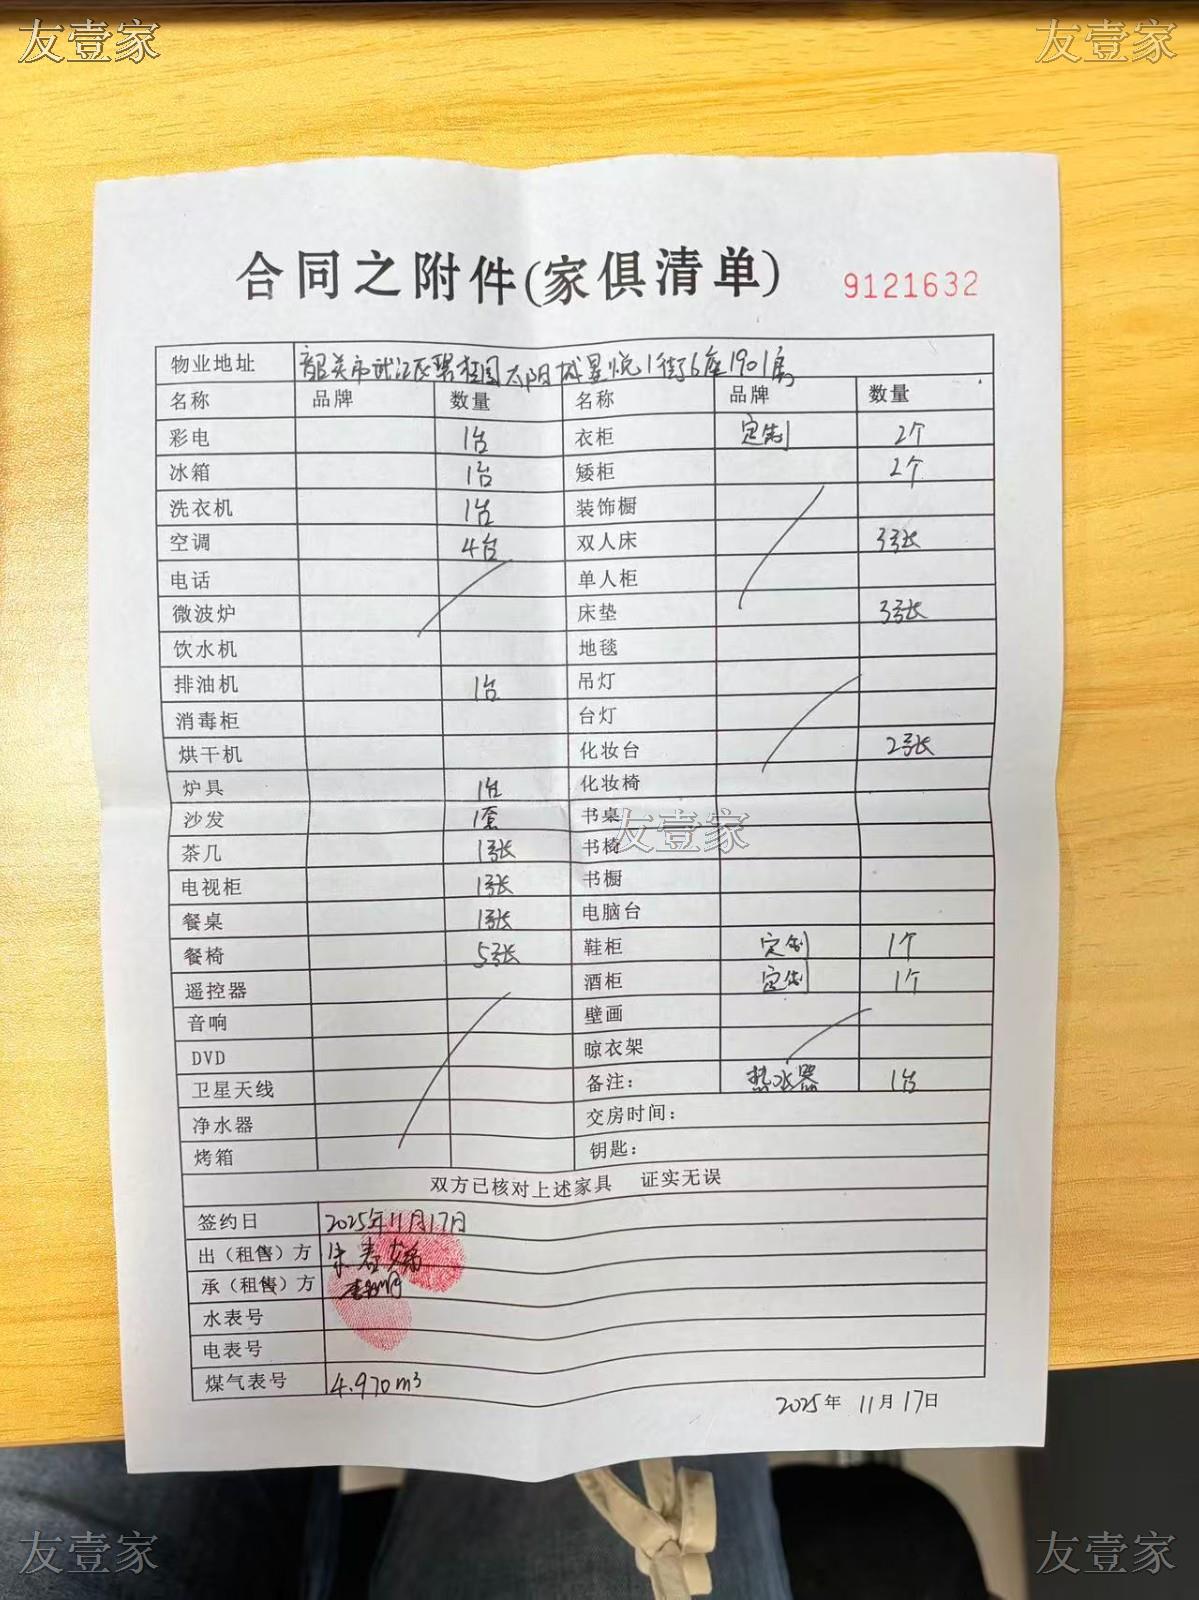 友壹家 友壹家
合同之附件(家俱清单) 9121632
物业地址 韶关市武江区碧桂园太阳城星悦1街6座1901房
名称 品牌 数量 名称 品牌 数量
彩电 1台 衣柜 定制 2个
冰箱 1台 矮柜 2个
洗衣机 1台 装饰橱
空调 4台 双人床 3张
电话 单人柜
微波炉 床垫 3张
饮水机 地毯
排油机 1台 吊灯
消毒柜 台灯
烘干机 化妆台 2张
炉具 1台 化妆椅
沙发 1套 书桌
友壹家
茶几 1张 书椅
电视柜 1张 书橱
餐桌 1张 电脑台
餐椅 5张 鞋柜 定制 1个
遥控器 酒柜 定制 1个
音响 壁画
DVD 晾衣架
卫星天线 备注： 热水器 1台
净水器 交房时间：
烤箱 钥匙：
双方已核对上述家具 证实无误
签约日 2025年11月17日
出（租售）方 朱春
承（租售）方
水表号
电表号
煤气表号 4.970m³
2025年 11月17日
友壹家 友壹家